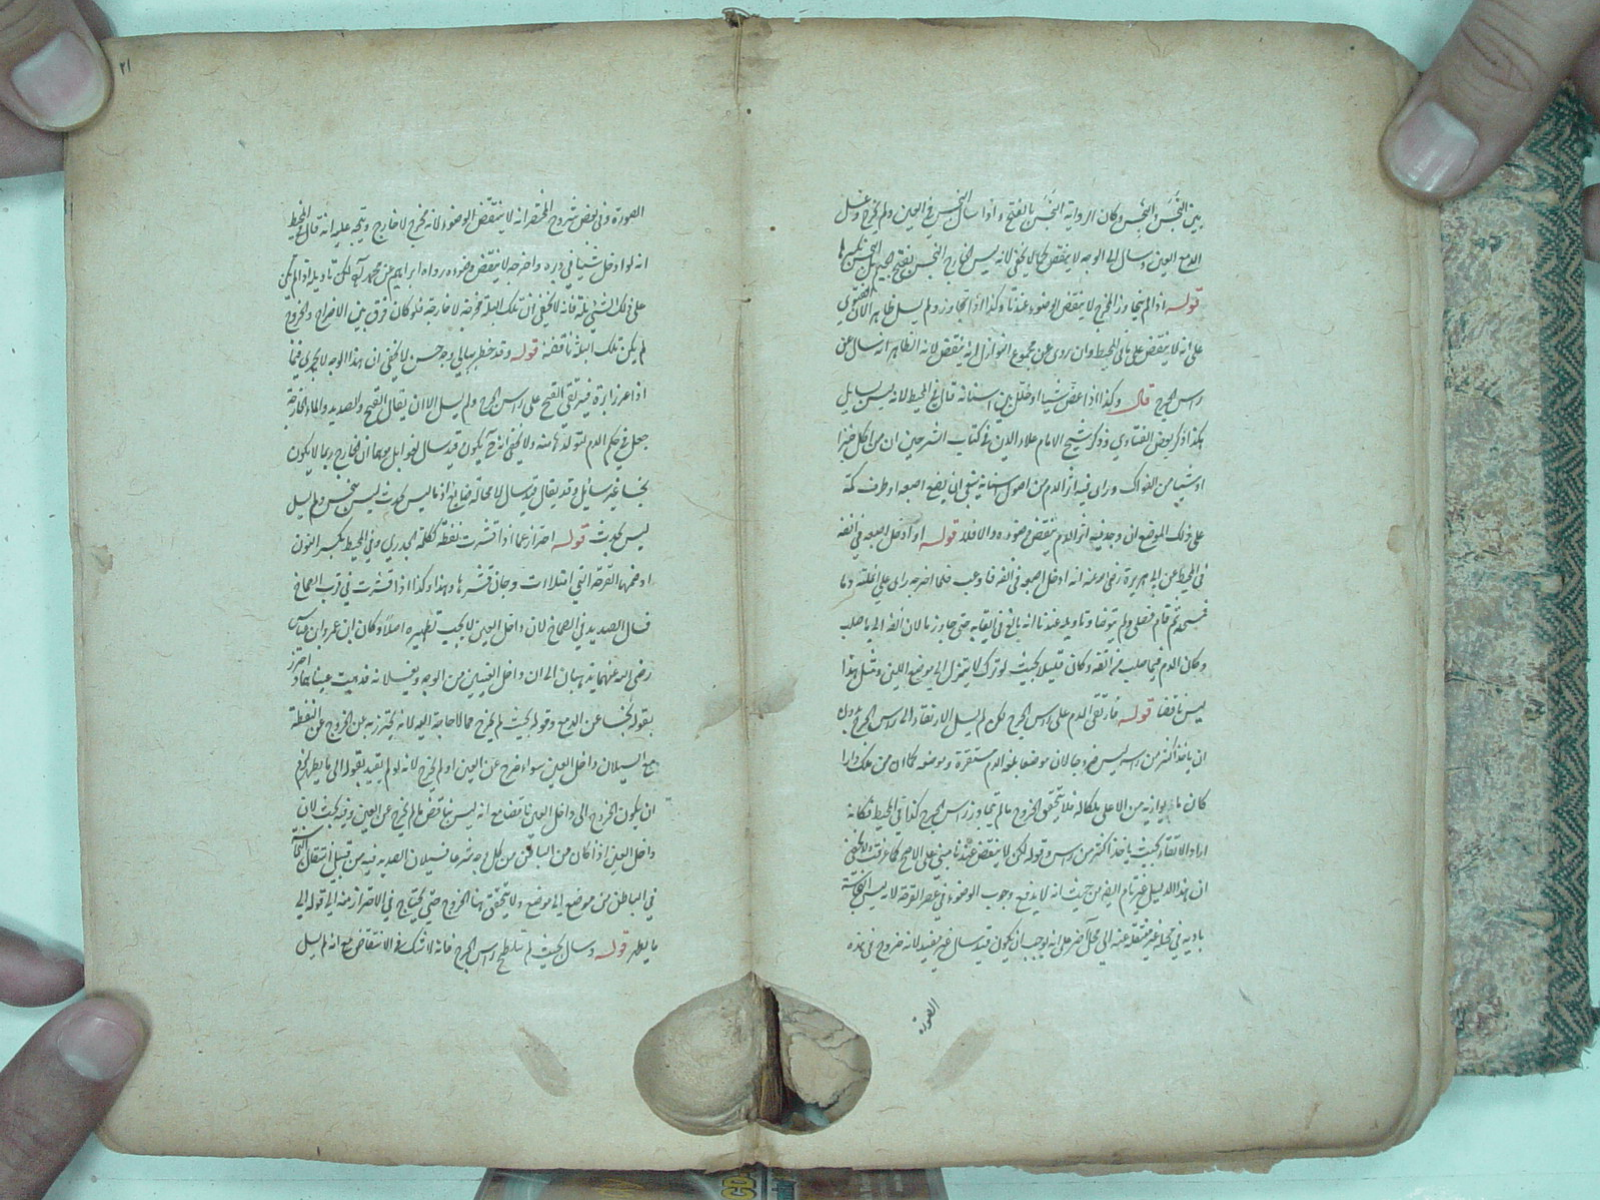 بين النجَس والنجِس وكان الرواية النجَس بالفتح واذا سال النجس في العين ولم يخرج وغسل
الدمع العين وسال الى الوجه لا ينقض كما لا يخفى لانه ليس الخارج النجس بفتح الجيم بل النجس بكسرها
قوله اذا لم يتجاوز المخرج لا ينقض الوضوء عندنا وكذا اذا تجاوز ولم يسل ظاهر الان الفتوى
على انه لا ينقض على ما في المحيط وان روى عن مجموع النوازل انه ينقض لانه الظاهر انه سال عن
راس الجرح قال وكذا اذا عض شيئا او خلل بين اسنانه قال في المحيط لانه ليس بسايل
هكذا ذكر بعض الفتاوي وذكر شيخ الامام علاء الدين في كتاب الشرحين ان من اكل خبزا
او شيئا من الفواكه وراى فيه اثر الدم من اصول اسنانه ينبغي ان يضع اصبعه او طرف كمه
على ذلك الموضع ان وجد فيه اثر الدم ينقض وضوءه والا فلا قوله او ادخل اصبعه في انفه
في المحيط عن ابي هريرة رضى الله عنه انه ادخل اصبعه في انفه فلما اخرجه راى على انملته دما
فمسحه ثم قام فصلى ولم يتوضأ وتاويله عندنا انه بالغ في حتى جاوز ما لان من انفه الى ما صلب
وكان الدم فيما صلب من انفه وكان قليلا بحيث لو ترك لا ينزل الى موضع اللين ومثل هذا
ليس ناقضا قوله فارتقى الدم على راس الجرح لكن لم يسل الارتقاء الى راس الجرح بدون
ان ياخذ اكثر من راسه ليس خروجا لان موضعا بلغه الدم مستقره وموضعه كما ان من ملك دارا
كان ما يوازيه من الاعلى ملكا له فلا يتحقق الخروج ما لم يتجاوز راس الجرح كذا في المحيط فكانه
اراد الارتقاء بحيث ياخذ اكثر من راس وقوله لكن لا ينقض عندنا مبني على الاصح كما عرفت ولا يخفى
ان هذا الدليل غير تام ايضا من حيث انه لا يدفع وجوب الوضوء في عصر القرحة لا ليس النجاسة
بادية في محله غير منتقلة عنه الى محل آخر على انه يوجب ان يكون قيد سال غير مفيد لانه خروج في هذه
الصورة
٢١
الصورة وفي بعض شروح المختصر انه لا ينقض الوضوء لانه مخرج لا خارج ويتجه عليه انه قال في المحيط
انه لو ادخل شيئا في دبره واخرجه لا ينقض وضوءه رواه ابراهيم عن محمد لكن تاويله اذا لم يكن
على ذلك الشئ بلة فانه لا يخفى ان تلك البلة مخرجة لا خارجة فلو كان فرق بين الاخراج والخروج
لم يكن تلك البلة ناقضة قوله وقد خطر ببالي وجه حسن لا يخفى ان هذا الوجه لا يجرى فيما
اذا غرز ابرة فيرتقى القيح على راس الجرح ولم يسل الا ان يقال القيح والصديد والماء الخارجة
جعل في حكم الدم لتولدها منه ولا يخفى انه ح يكون قيد سال لغوا بل موهما ان الخارج ربما لا يكون
نجسا غير سائل وقد يقال قيد سال لا محالة ضايع اذ ما ليس بحدث ليس بنجس وما لم يسل
ليس بحدث قوله احتراز عما اذا قشرت نفطة كلمة الجدري وفي المحيط بكسر النون
او ضمها القرحة التي امتلات وحان قشرها وهذا وكذا اذا قشرت في قرب الصماخ
فسال الصديد في الصماخ لان داخل العين لا يجب تطهيره اصلا وكان ابن عمر وابن عباس
رضى الله عنهما يذهبان الى ان داخل العينين من الوجه ويغسلانه فذهبت عيناهما احترز
بقوله نجسا عن الدمع وقوله بحيث لم يخرج مما لا حاجة اليه لانه يحترز به عن الخروج عن النفطة
مع السيلان داخل العين سواء خرج عن العين او لم يخرج لانه لو لم يقيد بقوله الى ما يطهر لزم
ان يكون الخروج الى داخل العين ناقضا مع انه ليس بناقض ما لم يخرج عن العين وفيه بحث لان
داخل العين اذا كان من الباطن من كل وجه شرعا فسيلان الصديد فيه من قبيل انتقال النجاسة
في الباطن من موضع الى موضع ولا يتحقق بها الخروج حتى يحتاج في الاحتراز منه الى قوله الى
ما يطهر قوله وسال بحيث لم تتلطخ راس الجرح فانه لا شك في الانتقاض مع انه لم يسل